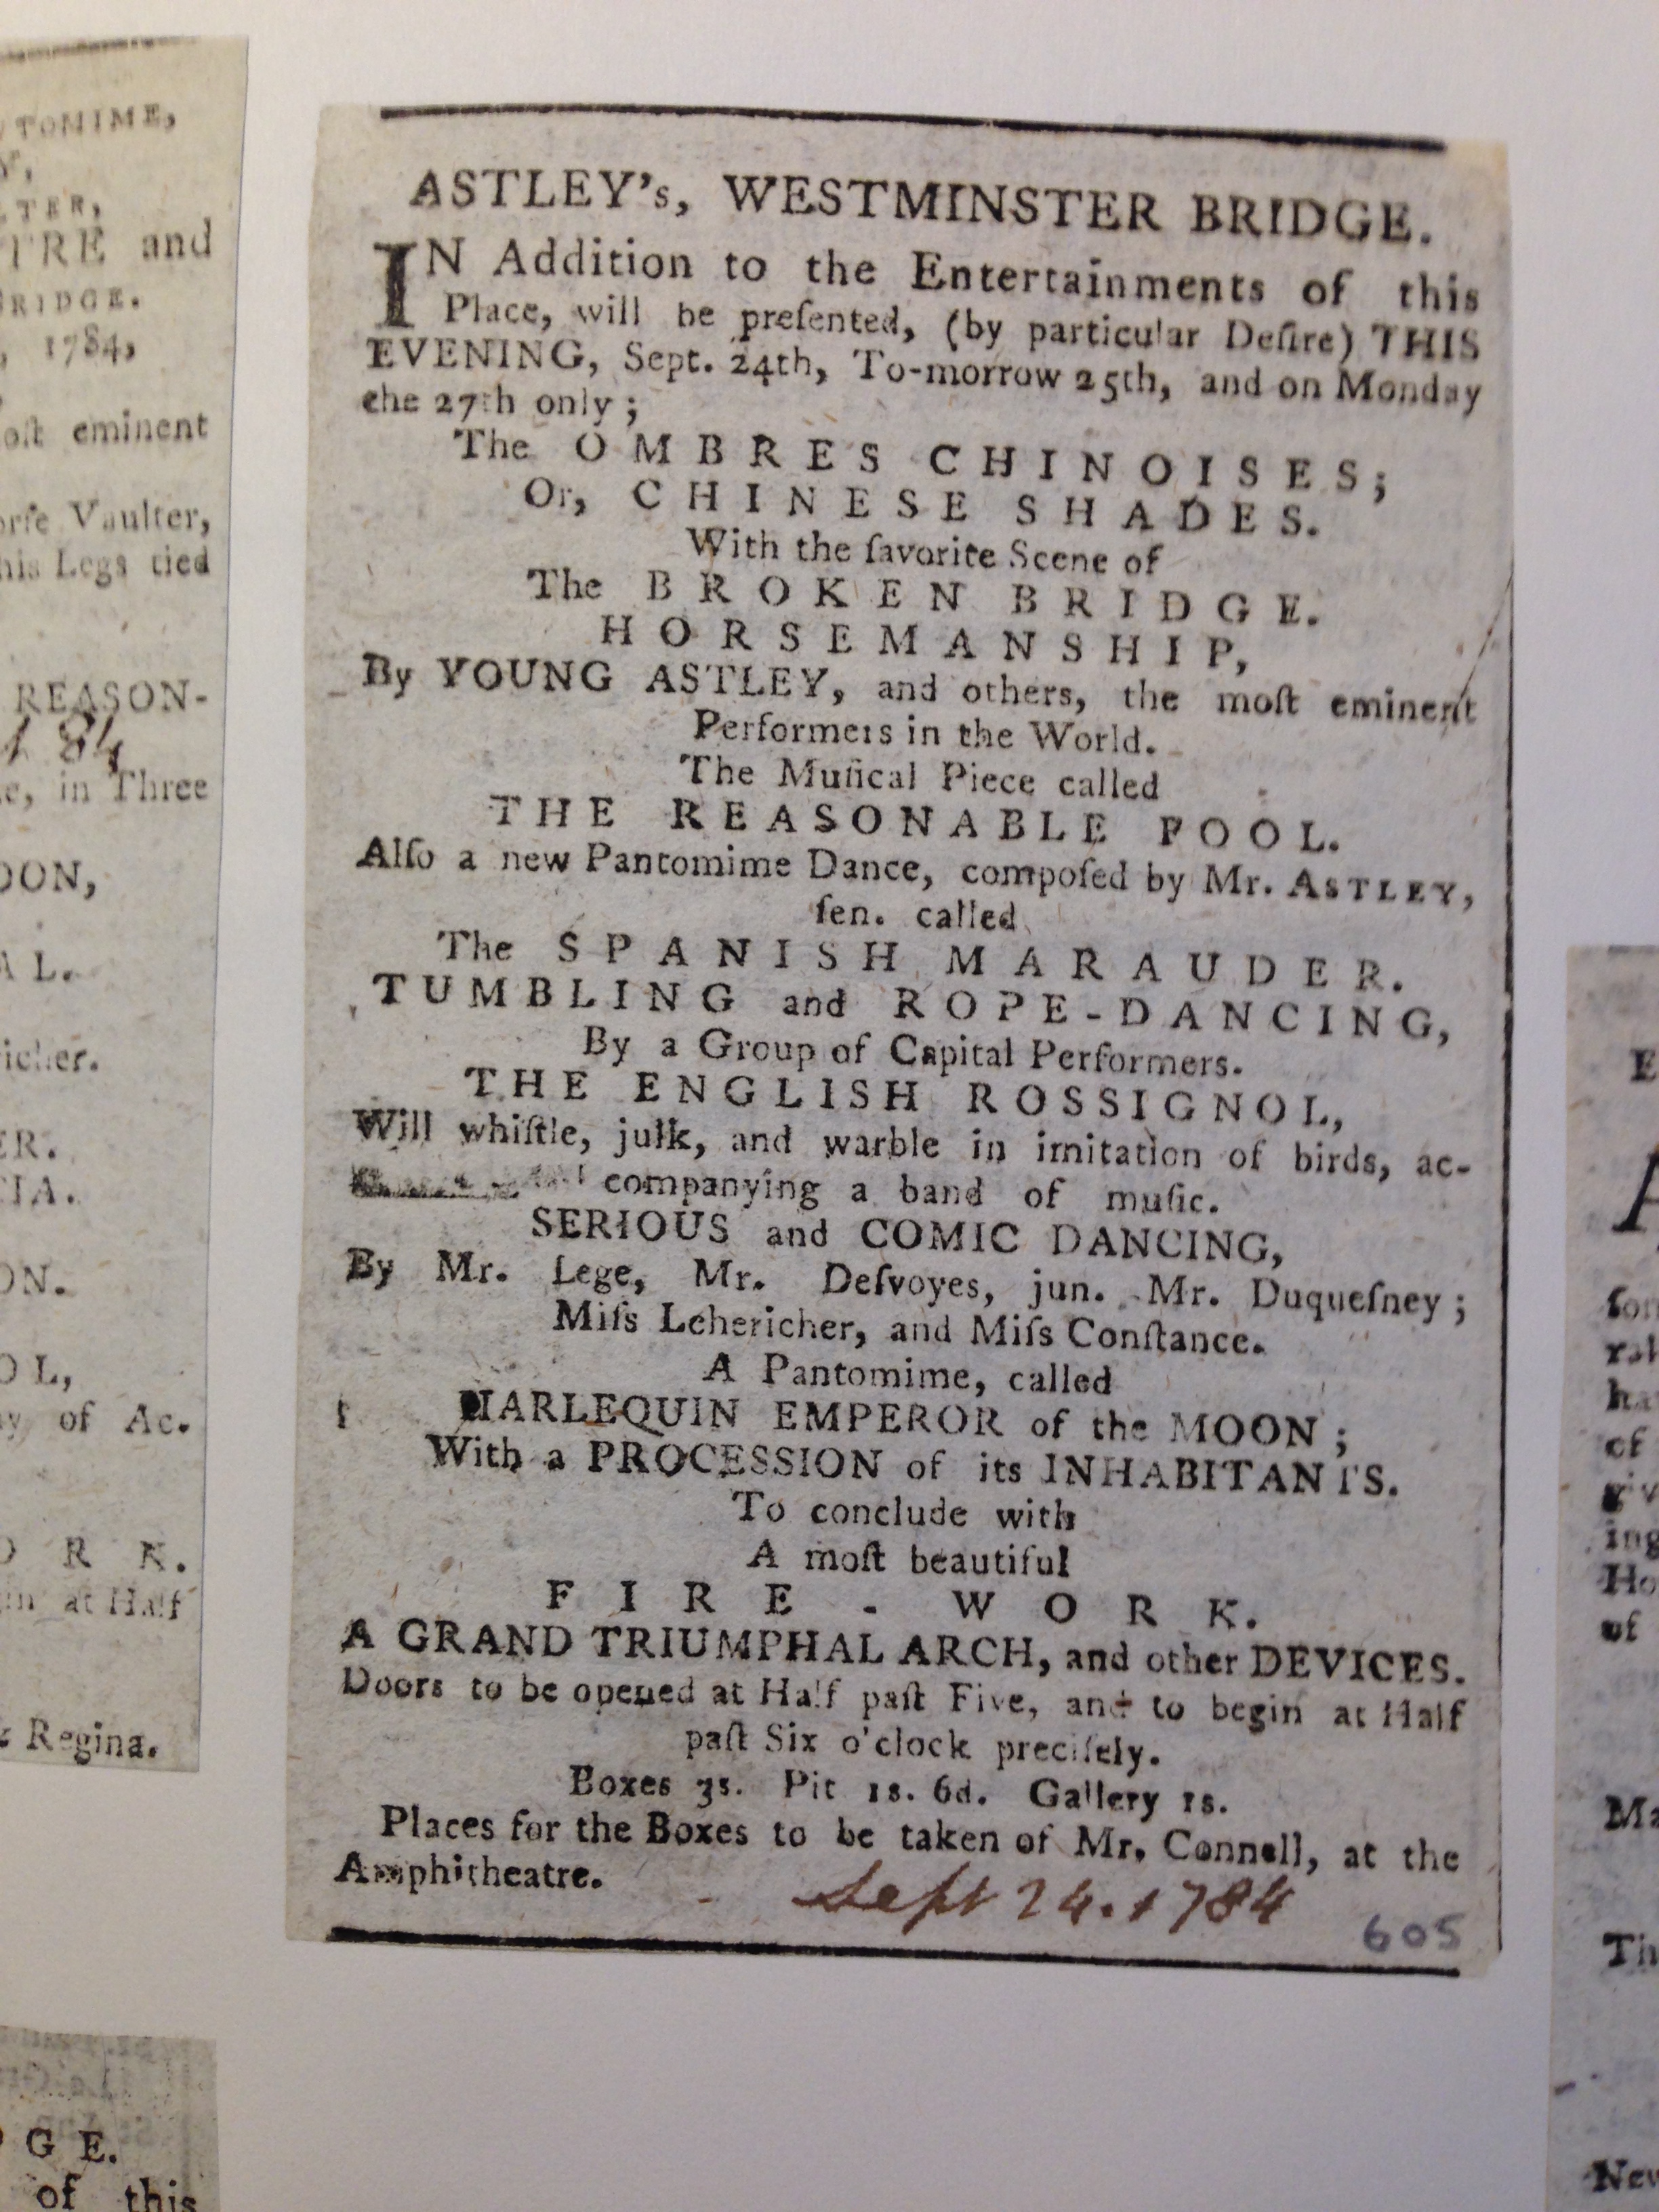 ASTLEY's, WESTMINSTER BRIDGE.
IN Addition to the Entertainments of this
Place, will be preſented, (by particular Deſire) THIS
EVENING, Sept. 24th, To-morrow 25th, and on Monday
the 27th only;
The OMBRES CHINOISES;
Or, CHINESE SHADES.
With the favorite Scene of
The BROKEN BRIDGE.
HORSEMANSHIP,
By YOUNG ASTLEY, and others, the moſt eminent
Performers in the World.
The Muſical Piece called
THE REASONABLE FOOL.
Alſo a new Pantomime Dance, compoſed by Mr. ASTLEY,
ſen. called
The SPANISH MARAUDER.
TUMBLING and ROPE-DANCING,
By a Group of Capital Performers.
THE ENGLISH ROSSIGNOL,
Will whiſtle, juſk, and warble in imitation of birds, ac-
companying a band of muſic.
SERIOUS and COMIC DANCING,
By Mr. Lege, Mr. Deſvoyes, jun. Mr. Duqueſney;
Miſs Lehericher, and Miſs Conſtance.
A Pantomime, called
HARLEQUIN EMPEROR of the MOON;
With a PROCESSION of its INHABITANTS.
To conclude with
A moſt beautiful
FIRE-WORK.
A GRAND TRIUMPHAL ARCH, and other DEVICES.
Doors to be opened at Half paſt Five, and to begin at Half
paſt Six o'clock preciſely.
Boxes 3s. Pit 1s. 6d. Gallery 1s.
Places for the Boxes to be taken of Mr. Connell, at the
Amphitheatre.
Sept 24. 1784
605
TRE and
1784,
eminent
Vaulter,
his Legs tied
REASON-
84
in Three
of Ac.
at Half
Regina.
GE.
of this
of
of